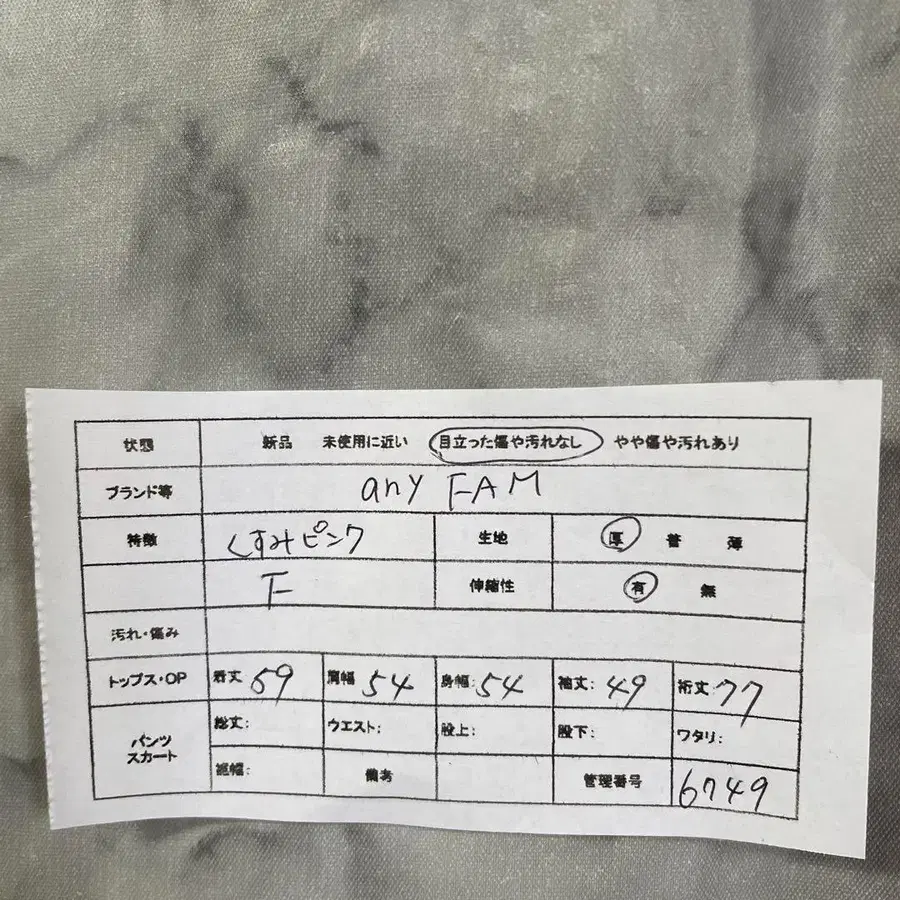 状態 新品 未使用に近い 目立った傷や汚れなし やや傷や汚れあり
ブランド等 any FAM
特徴 くすみピンク 生地 厚 普 薄
F 伸縮性 有 無
汚れ・傷み
トップス・OP 着丈 59 肩幅 54 身幅: 54 袖丈: 49 裄丈: 77
パンツ スカート 総丈: ウエスト: 股上: 股下: ワタリ:
裾幅: 備考 管理番号 6749